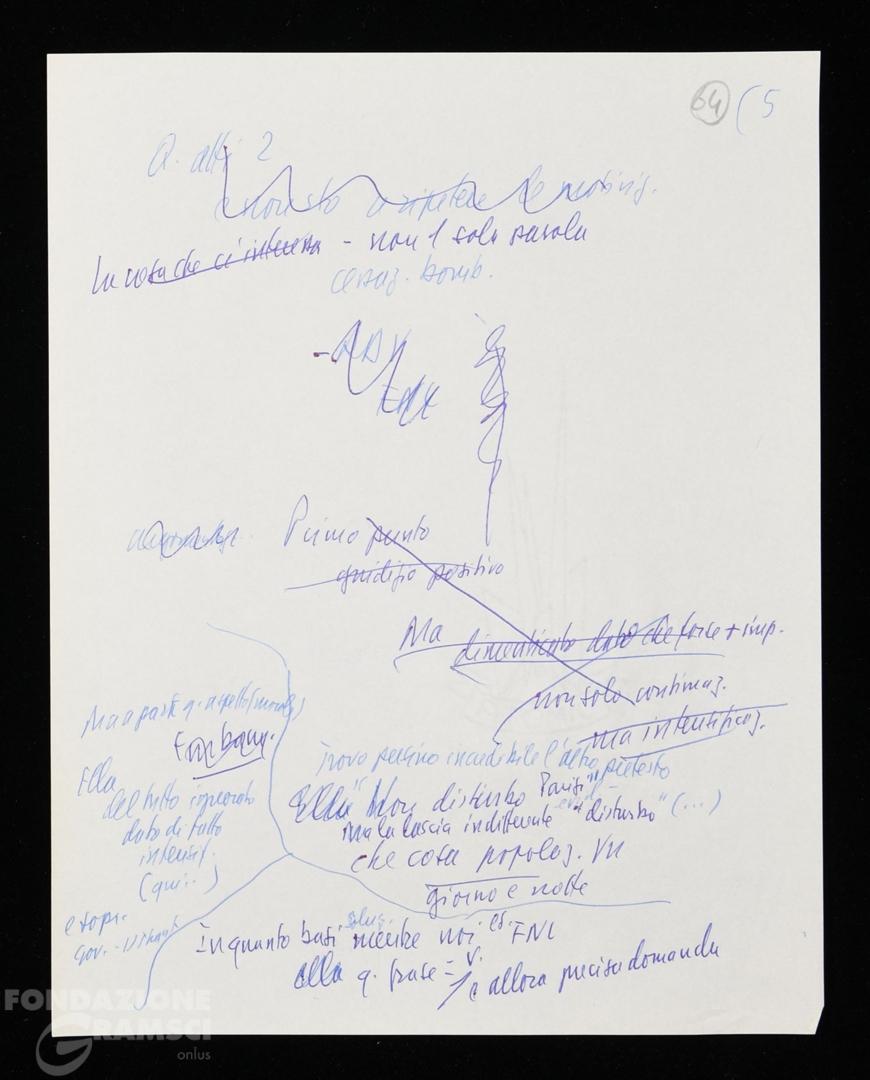 64 (5
Q. altri 2
a ripetere le
La cosa che ci interessa - non 1 sola parola
cessaz. bomb.
- RDV
FNL
Primo punto
giudizio positivo
Ma
dimenticato dato che forse + imp.
non solo continuaz.
ma intensificaz.
Ma a parte q. aspetto (morale)
Ella
del tutto ignorato
dato di fatto
intensif.
(qui..)
e sopr.
gov. - U Thant
Trovo persino incredibile l'altro pretesto
Ella "Non disturbo Parigi"
Ma la lascia indifferente "disturbo" (...)
che cosa popolaz. VN
giorno e notte
In quanto basi soluz. mentre noi es. FNL
alla q. frase = V.
e allora precisa domanda
FONDAZIONE
GRAMSCI
onlus